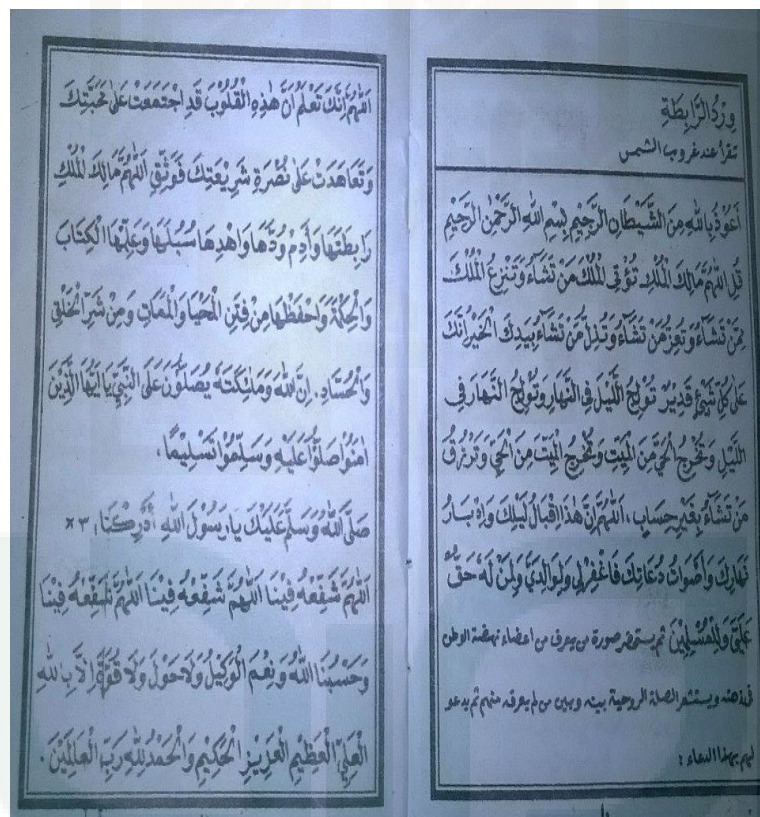 وِرْدُ الرَّابِطَةِ
تقرأ عند غروب الشمس
أَعُوْذُ بِاللهِ مِنَ الشَّيْطَانِ الرَّجِيْمِ بِسْمِ اللهِ الرَّحْمٰنِ الرَّحِيْمِ
قُلِ اللّٰهُمَّ مَالِكَ الْمُلْكِ تُؤْتِى الْمُلْكَ مَنْ تَشَاءُ وَتَنْزِعُ الْمُلْكَ
مِمَّنْ تَشَاءُ وَتُعِزُّ مَنْ تَشَاءُ وَتُذِلُّ مَنْ تَشَاءُ بِيَدِكَ الْخَيْرُ اِنَّكَ
عَلَى كُلِّ شَيْءٍ قَدِيْرٌ تُوْلِجُ اللَّيْلَ فِى النَّهَارِ وَتُوْلِجُ النَّهَارَ فِى
اللَّيْلِ وَتُخْرِجُ الْحَيَّ مِنَ الْمَيِّتِ وَتُخْرِجُ الْمَيِّتَ مِنَ الْحَيِّ وَتَرْزُقُ
مَنْ تَشَاءُ بِغَيْرِ حِسَابٍ، اَللّٰهُمَّ اِنَّ هٰذَا اِقْبَالُ لَيْلِكَ وَاِدْبَارُ
نَهَارِكَ وَاَصْوَاتُ دُعَاتِكَ فَاغْفِرْ لِى وَلِوَالِدَيَّ وَلِمَنْ لَهُ حَقٌّ
عَلَيَّ وَلِلْمُسْلِمِيْنَ ثم يستحضر صورة من يعرف من اعضاء نهضة الوطن
فى ذهنه ويستشعر الصلة الروحية بينه وبين من لم يعرفه منهم ثم يدعو
لهم بهذا الدعاء :
اَللّٰهُمَّ اِنَّكَ تَعْلَمُ اَنَّ هٰذِهِ الْقُلُوْبَ قَدِ اجْتَمَعَتْ عَلَى مَحَبَّتِكَ
وَتَعَاهَدَتْ عَلَى نُصْرَةِ شَرِيْعَتِكَ فَوَثِّقِ اللّٰهُمَّ مَالِكَ الْمُلْكِ
رَابِطَتَهَا وَأَدِمْ وُدَّهَا وَاهْدِهَا سُبُلَهَا وَعَلِّمْهَا الْكِتَابَ
وَالْحِكْمَةَ وَاحْفَظْهَا مِنْ فِتَنِ الْمَحْيَا وَالْمَمَاتِ وَمِنْ شَرِّ الْخَلْقِ
وَالْحُسَّادِ. اِنَّ اللهَ وَمَلٰئِكَتَهُ يُصَلُّوْنَ عَلَى النَّبِيِّ يَا اَيُّهَا الَّذِيْنَ
اٰمَنُوْا صَلُّوْا عَلَيْهِ وَسَلِّمُوْا تَسْلِيْمًا،
صَلَّى اللهُ وَسَلَّمَ عَلَيْكَ يَا رَسُوْلَ اللهِ أَدْرِكْنَا، ٣×
اَللّٰهُمَّ شَفِّعْهُ فِيْنَا اَللّٰهُمَّ شَفِّعْهُ فِيْنَا اَللّٰهُمَّ شَفِّعْهُ فِيْنَا
وَحَسْبُنَا اللهُ وَنِعْمَ الْوَكِيْلُ وَلَا حَوْلَ وَلَا قُوَّةَ اِلَّا بِاللهِ
الْعَلِيِّ الْعَظِيْمِ الْعَزِيْزِ الْحَكِيْمِ وَالْحَمْدُ لِلّٰهِ رَبِّ الْعَالَمِيْنَ.